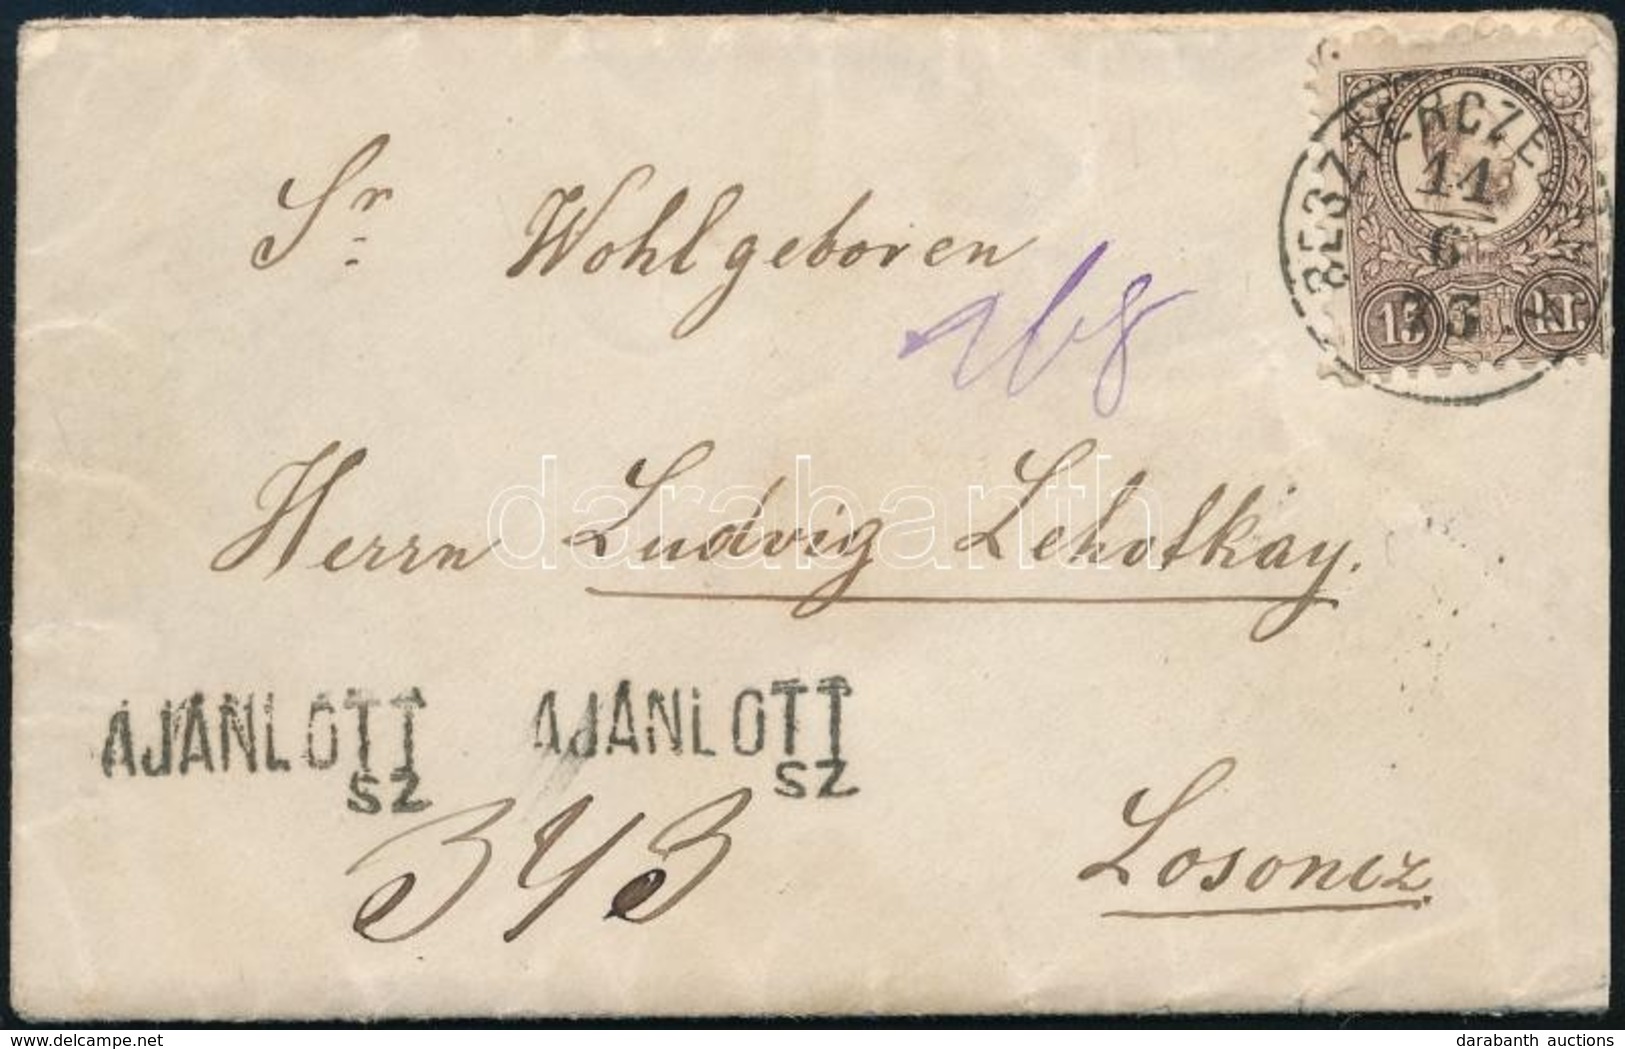 Sr. Wohlgeboren
BESZTERCZE
11
6
73
15 kr.
168
Herrn Ludvig Lehotkay.
darabanth
AJÁNLOTT
SZ
AJÁNLOTT
SZ
343
Losoncz
delcampe.net
darabanth auctions